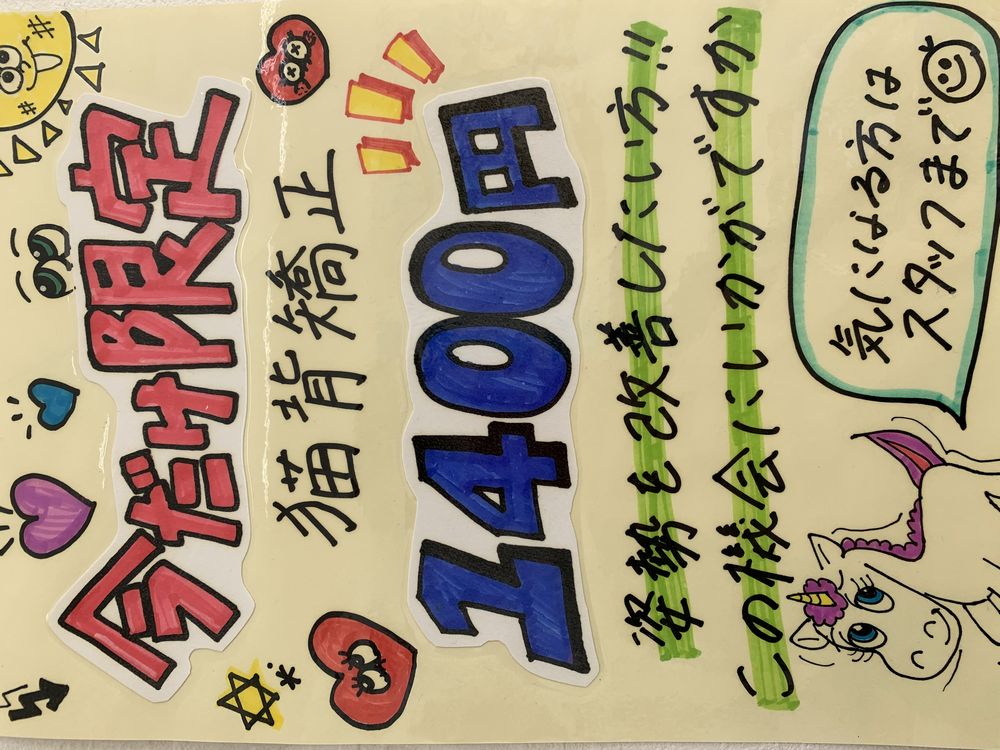 今だけ限定
猫背矯正
1400円
姿勢を改善したい方!!
この機会にいかがですか
気になる方は
スタッフまで